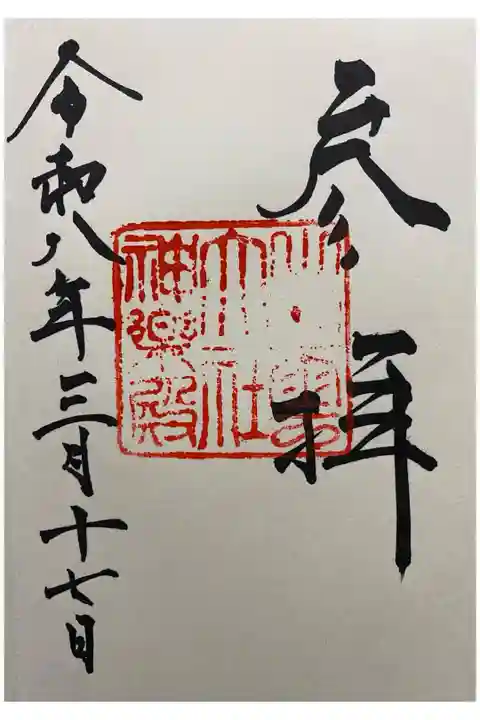 参拝
出雲
大社
神楽殿
令和八年三月十七日